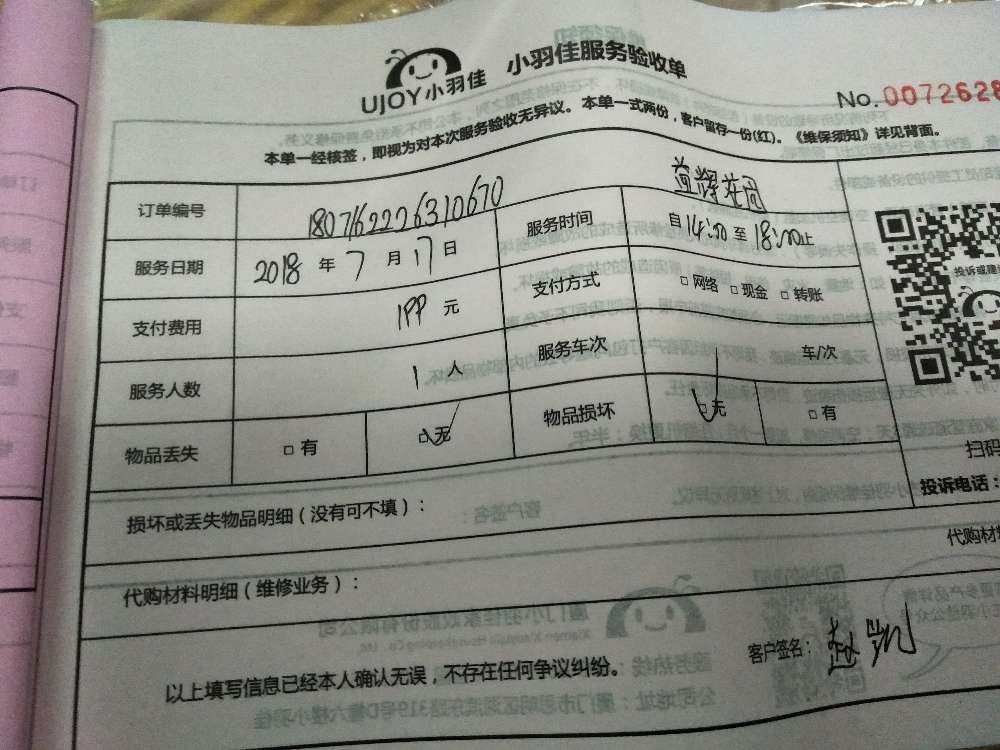 UJOY小羽佳 小羽佳服务验收单
No.0072628
本单一经核签，即视为对本次服务验收无异议。本单一式两份，客户留存一份(红)。《维保须知》详见背面。
订单编号 1807162226310670
服务日期 2018 年 7 月 17 日 服务时间 自 14:00 至 18:00 止
支付费用 199 元 支付方式 □ 网络 □ 现金 □ 转账
投诉或建
服务人数 1 人 服务车次 车/次
物品丢失 □ 有 □ 无 物品损坏 □ 无 □ 有
扫码
投诉电话：
损坏或丢失物品明细（没有可不填）：
代购材料明细（维修业务）： 代购材料
以上填写信息已经本人确认无误，不存在任何争议纠纷。 客户签名： 赵凯